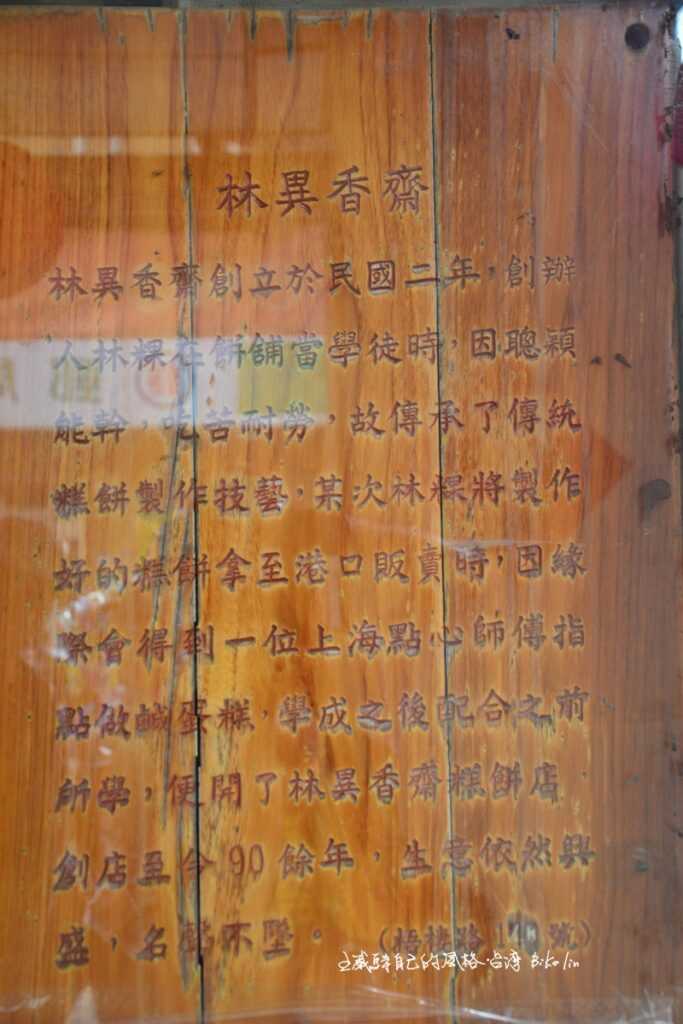 林異香齋
林異香齋創立於民國二年，創辦
人林粿在餅舖當學徒時，因聰穎
能幹，吃苦耐勞，故傳承了傳統
糕餅製作技藝，某次林粿將製作
好的糕餅拿至港口販賣時，因緣
際會得到一位上海點心師傅指
點做鹹蛋糕，學成之後配合之前
所學，便開了林異香齋糕餅店
創店至今90餘年，生意依然興
盛，名聲不墜。（梧棲路 號）
自己的風格.台灣 Biko lin